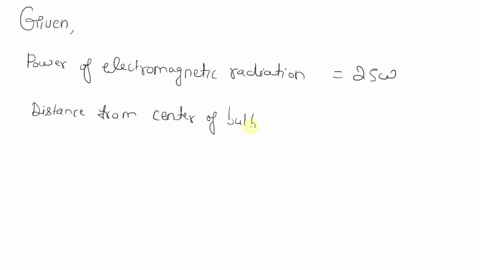 Given,
Power of electromagnetic radiation = 25w
Distance from center of bulb